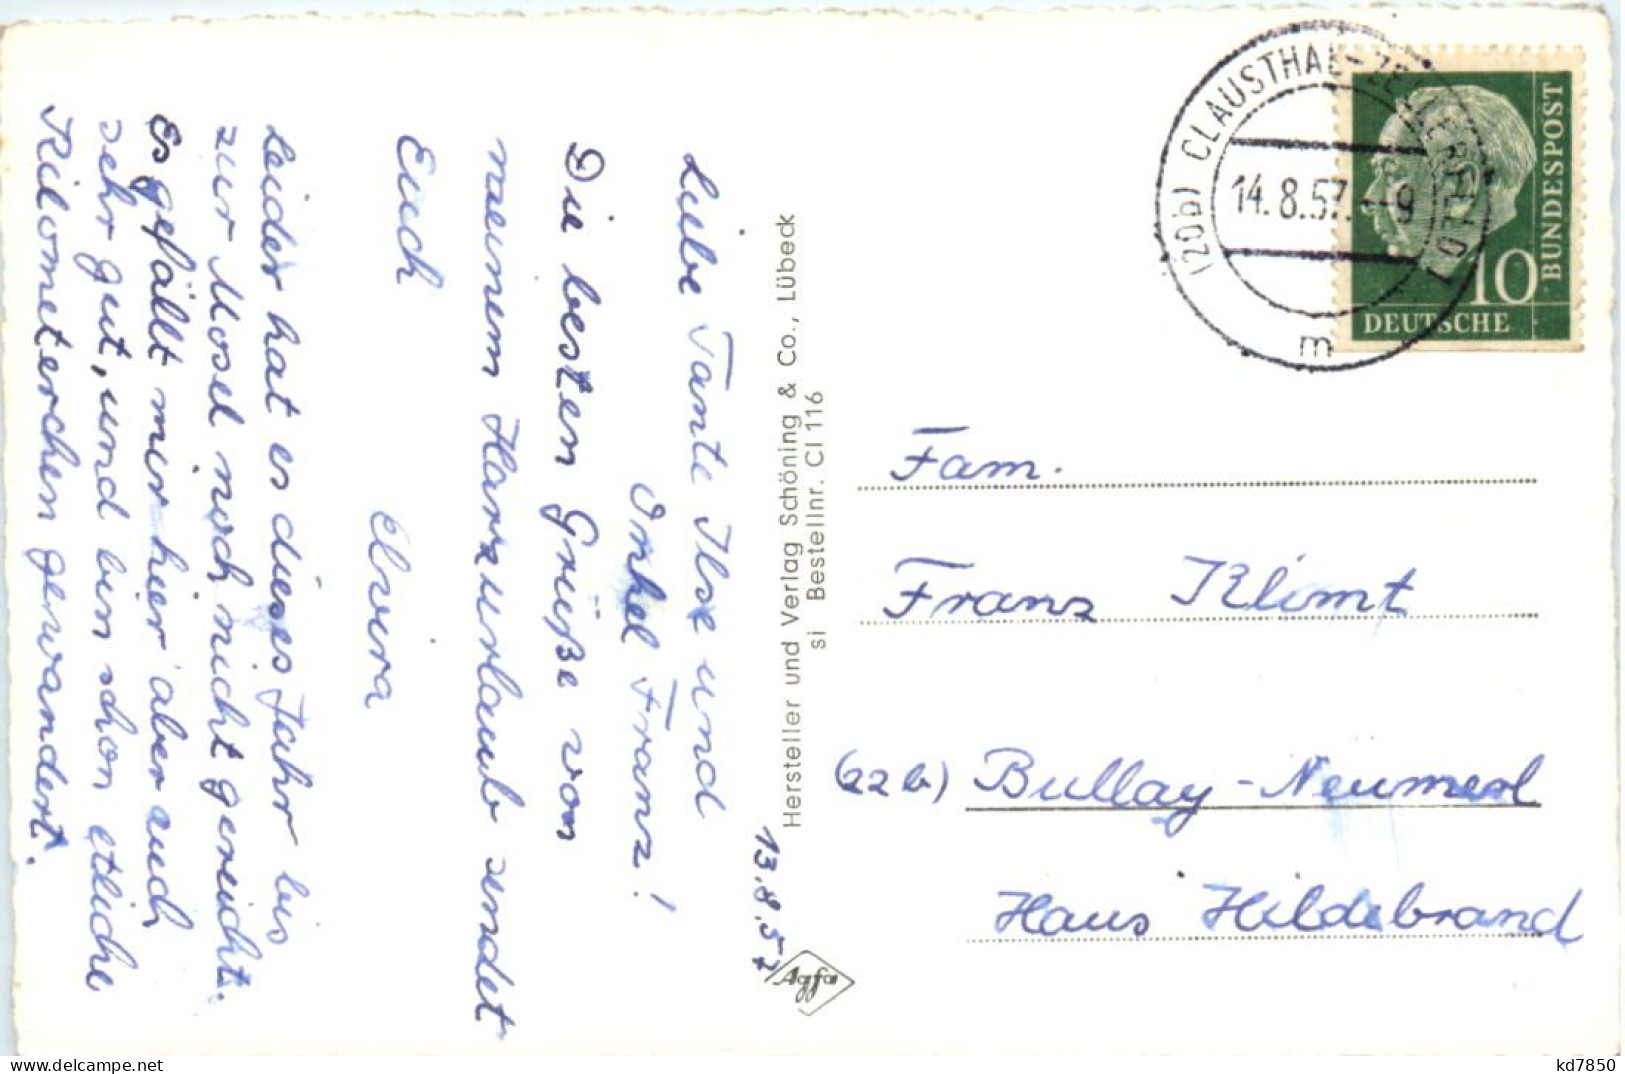 13.8.57
Liebe Tante Ilse und
Onkel Franz!
Die besten Grüße von
meinem Harzurlaub sendet
Euch
Elvira
Leider hat es dieses Jahr bis
zur Mosel noch nicht gereicht.
Es gefällt mir hier aber auch
sehr gut, und bin schon etliche
Kilometerchen gewandert.
Hersteller und Verlag Schöning & Co., Lübeck
si Bestellnr. Cl 116
Agfa
(20b) CLAUSTHAL-ZELLERFELD 1
14.8.57.-9
m
BUNDESPOST
10
DEUTSCHE
Fam.
Franz Klimt
(22b) Bullay-Neumerl
Haus Hildebrand
www.delcampe.net
kd7850